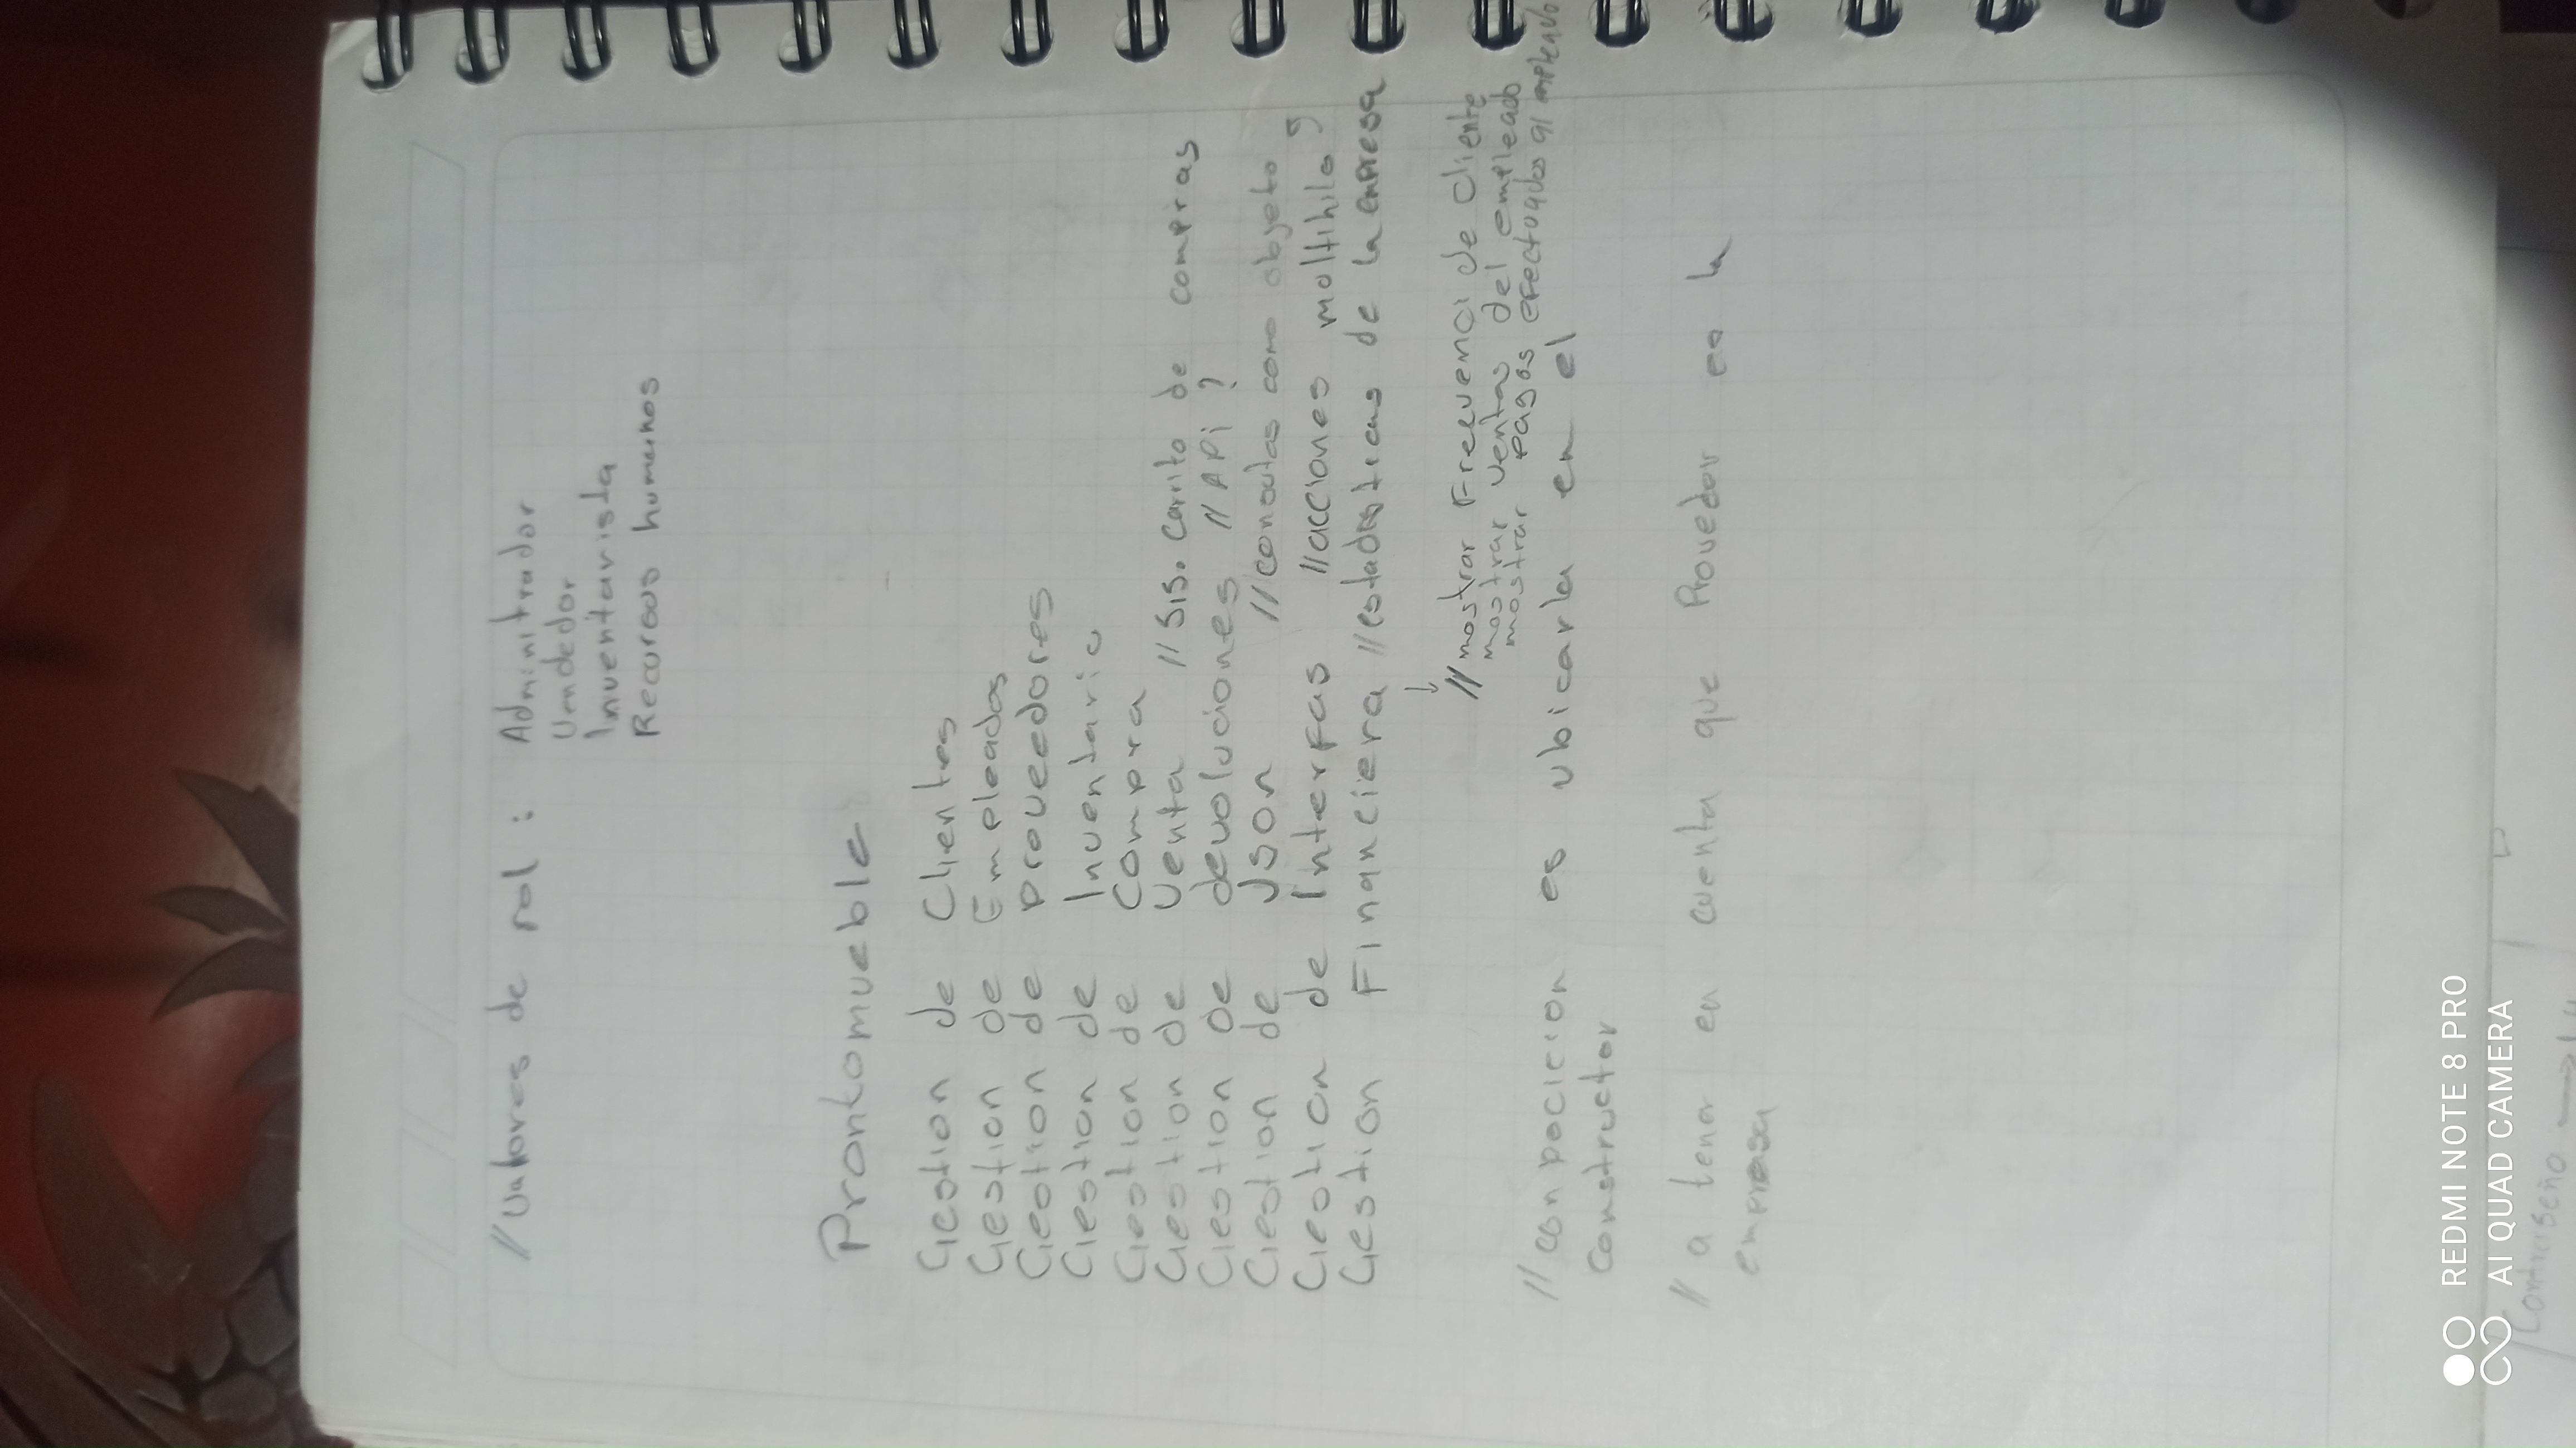 // Valores de rol : Adminitrador
Vendedor
Inventarista
Recursos humanos
Prontomueble
Gestion de Clientes
Gestion de Empleados
Gestion de proveedores
Gestion de Inventario
Gestion de Compra
Gestion de Venta // Sis. Carrito de compras
Gestion de devoluciones // APi ?
Gestion de Json // consutas como objeto
Gestion de Interfas // acciones moltihilo
Gestion Financiera // estadisticas de la empresa
↓
// mostrar Frecuenci de Cliente
mostrar ventas del empleado
mostrar pagos efectuados al empleado
// con pocicion es ubicarla en el
constructor
// a tener en cuenta que Provedor es la
empresa
REDMI NOTE 8 PRO
AI QUAD CAMERA
Contraseña →